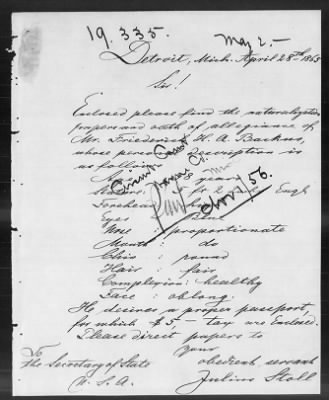 19.335.
May 2.-
Detroit, Mich. April 28th 1863
Sir!
Enclosed please find the naturalization
papers and oath of allegiance of
Mr. Friederick H. A. Backus,
whose personal description is
as follows:
years
Engl.
Forehead
Eyes
Nose : proportionate
Mouth : do
Chin : round
Hair : fair
Complexion : healthy
Face : oblong.
He desires a proper passport,
for which $5,- tax are Enclosed.
Please direct papers to
your
obedient servant
Julius Stoll
To
the Secretary of State
U. S. A.